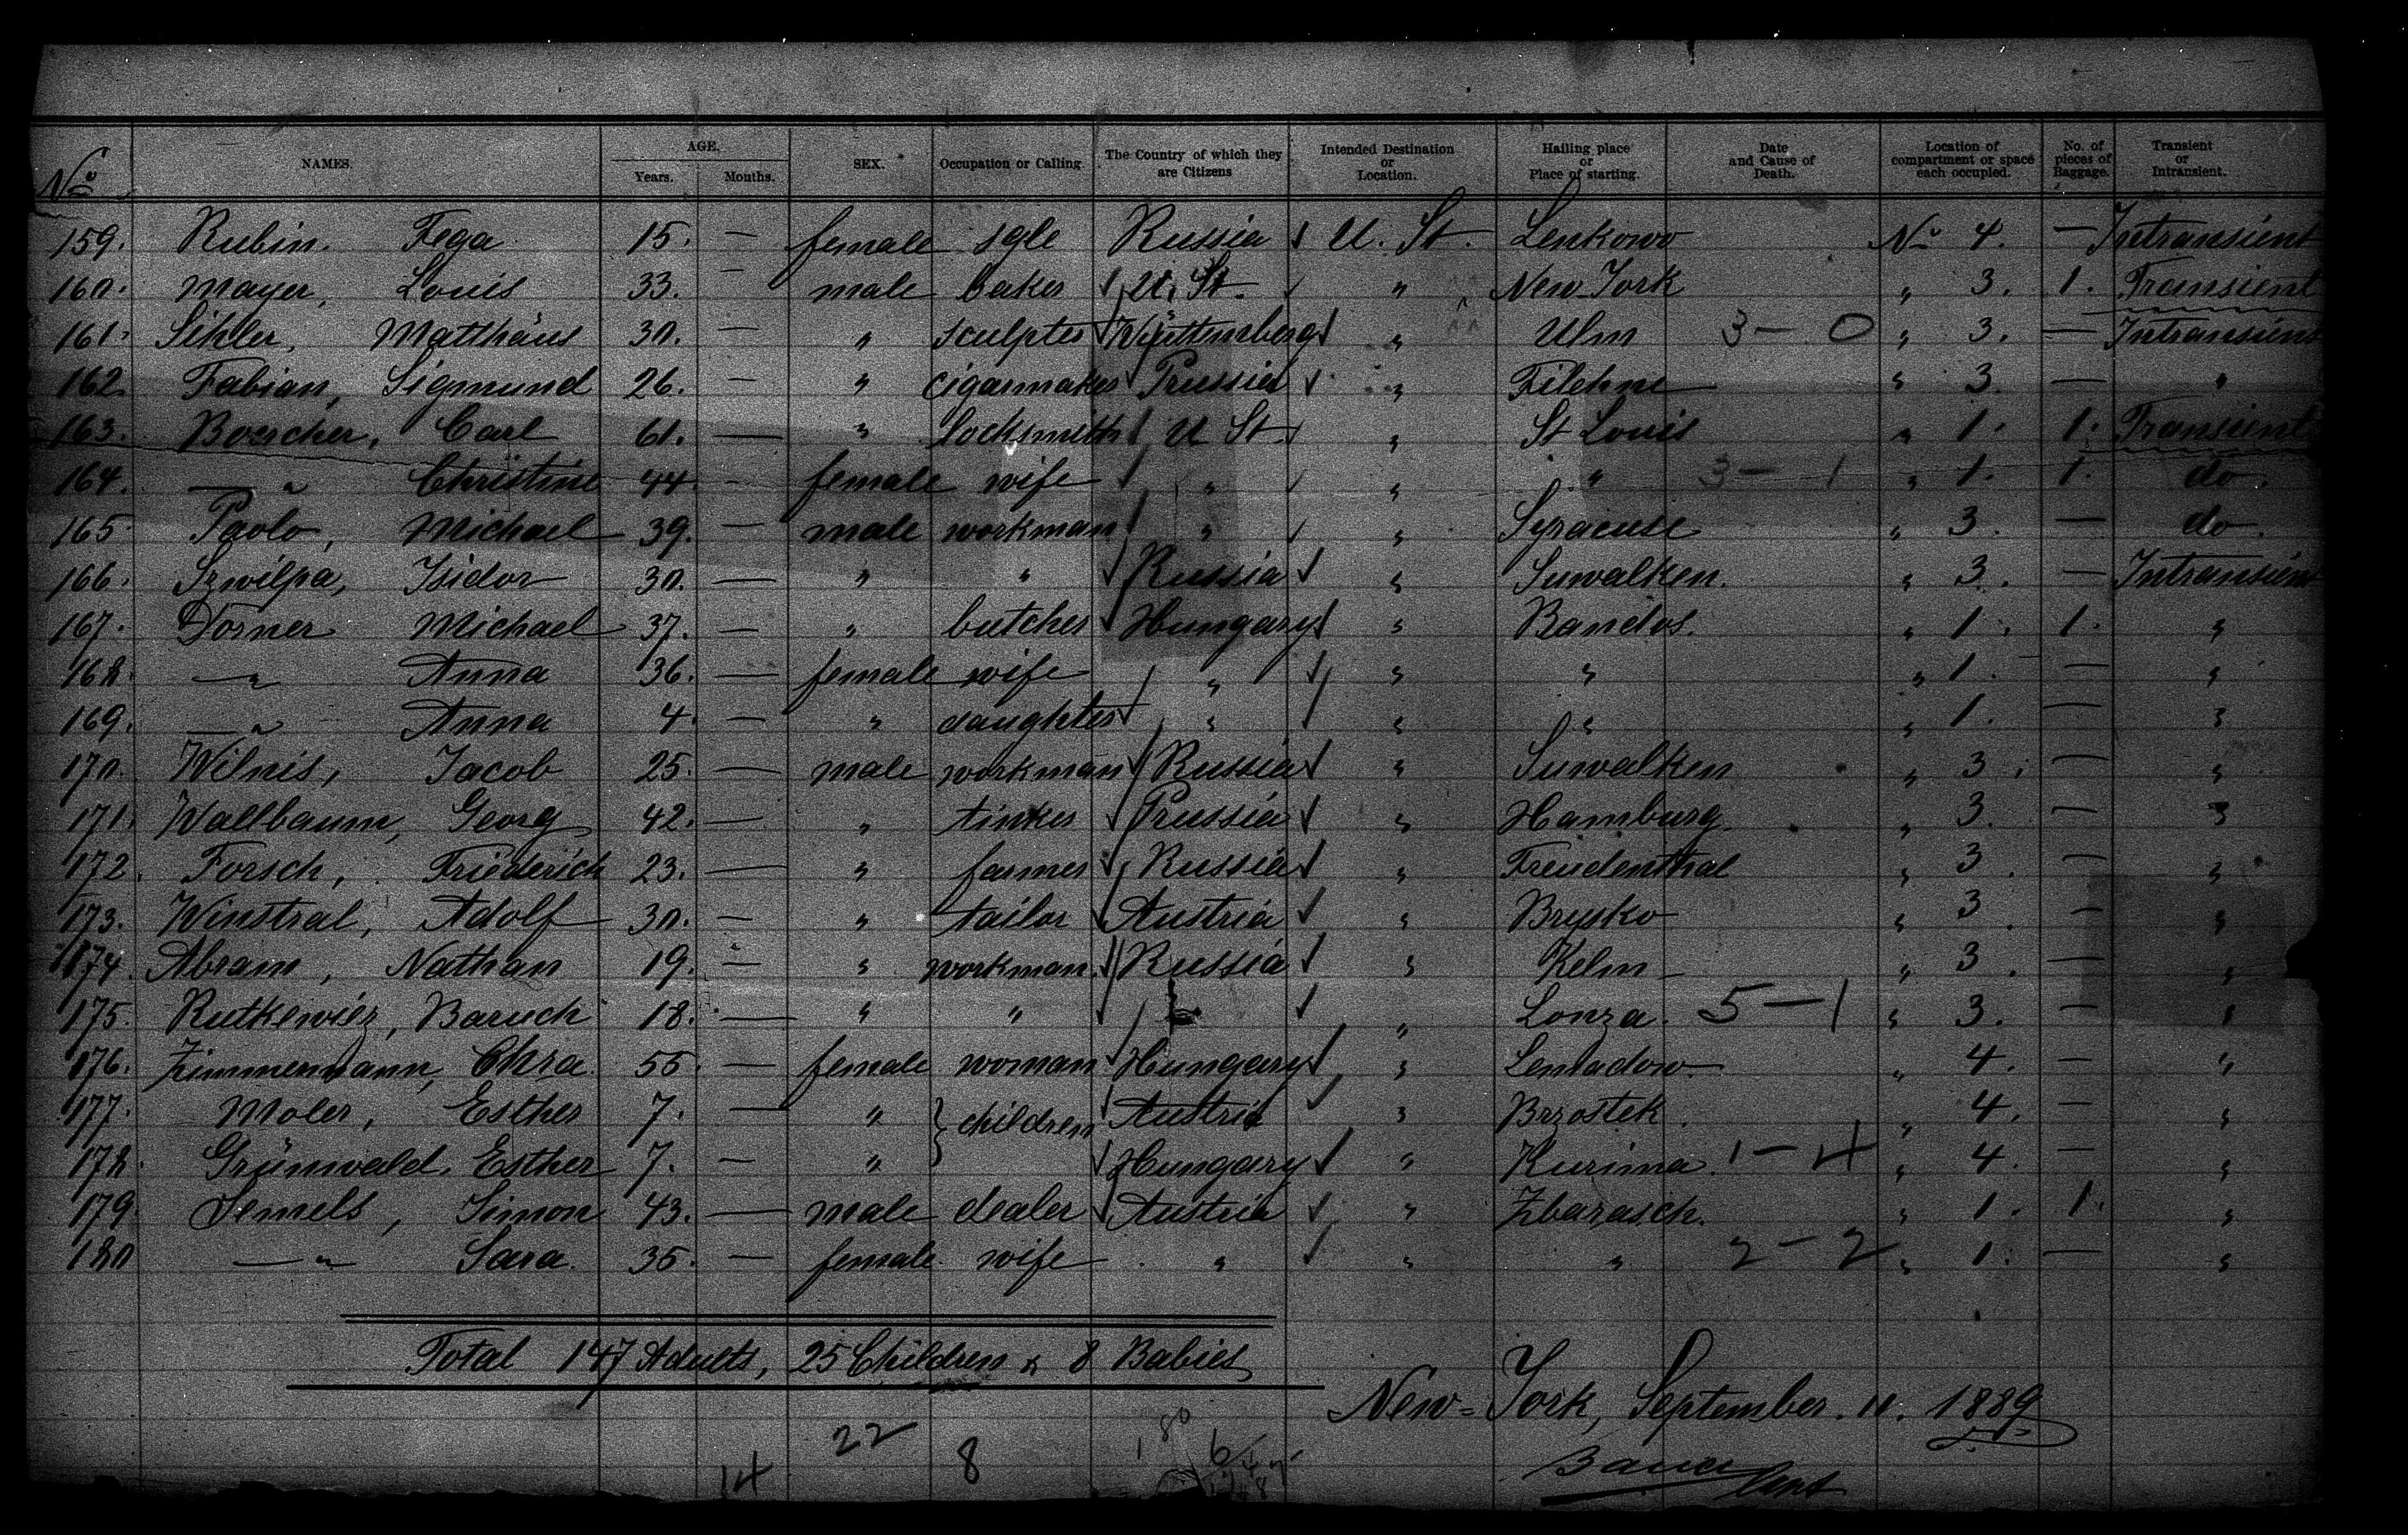 No NAMES. AGE. Years. Months. SEX. Occupation or Calling. The Country of which they are Citizens Intended Destination or Location. Hailing place or Place of starting. Date and Cause of Death. Location of compartment or space each occupied. No. of pieces of Baggage. Transient or Intransient.
159. Rubin. Fega 15. — female sgle Russia √ U. St. Lenkowo No 4. — Intransient
160. Mayer, Louis 33. — male baker √ U. St. √ " New-York " 3. 1. Transient
161. Sihler, Matthäus 30. — " sculpter √ Württemberg √ " Ulm 3 — 0 " 3. — Intransient
162. Fabian, Sigmund 26. — " cigarmaker √ Prussia √ " Filehne " 3. — "
163. Boercher, Carl 61. — " locksmith √ U St. √ " St Louis " 1. 1. Transient
164. — " Christine 44. — female wife √ " √ " " 3 — 1 " 1. 1. do.
165. Paolo, Michael 39. — male workman √ " √ " Syracuse " 3. — do.
166. Szwilpa, Isidor 30. — " " √ Russia √ " Suwalken. " 3. — Intransient
167. Dorner Michael 37. — " butcher √ Hungary √ " Bandos. " 1. 1. "
168. — " Anna 36. — female wife √ " √ " " " 1. — "
169. — " Anna 4. — " daughter √ " √ " " " 1. — "
170. Wilnis, Jacob 25. — male workman √ Russia √ " Suwalken " 3. — "
171. Wallbaum, Georg 42. — " tinker √ Prussia √ " Hamburg. " 3. — "
172. Forsch, Friederich 23. — " farmer √ Russia √ " Freudenthal " 3. — "
173. Winstral, Adolf 30. — " tailor √ Austria √ " Brysko " 3. — "
174. Abram, Nathan 19. — " workman. √ Russia √ " Kelm " 3. — "
175. Rutkewiez, Baruch 18. — " " √ " √ " Lonza. 5 — 1 " 3. — "
176. Zimmermann, Chra. 55. — female woman √ Hungary √ " Lemadow " 4. — "
177. Moler, Esther 7. — " } children √ Austria √ " Brzostek. " 4. — "
178. Grünwald, Esther 7. — " √ Hungary √ " Kurima. 1 — 4 " 4. — "
179. Semels, Simon 43. — male dealer √ Austria √ " Zbarasch. " 1. 1. "
180 — " Sara. 35. — female. wife " √ " " 2 — 2 " 1. — "
Total 147 Adults, 25 Children & 8 Babies
New-York, September. 11. 1889
22
8
14